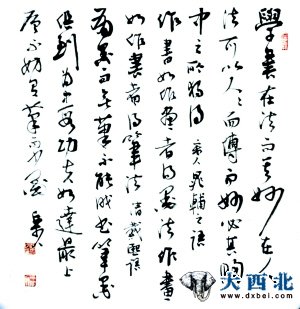 學書在法而其妙在人
法可以人人而傳而妙必其胸
中之所獨得 宋人晁補之語
作書如作畫者得墨法作畫
如作書者得筆法 清戴熙語
而无筆不能成書筆墨
俱到功夫如達最上
層不妨有筆而
大西北网
www.dxbei.com